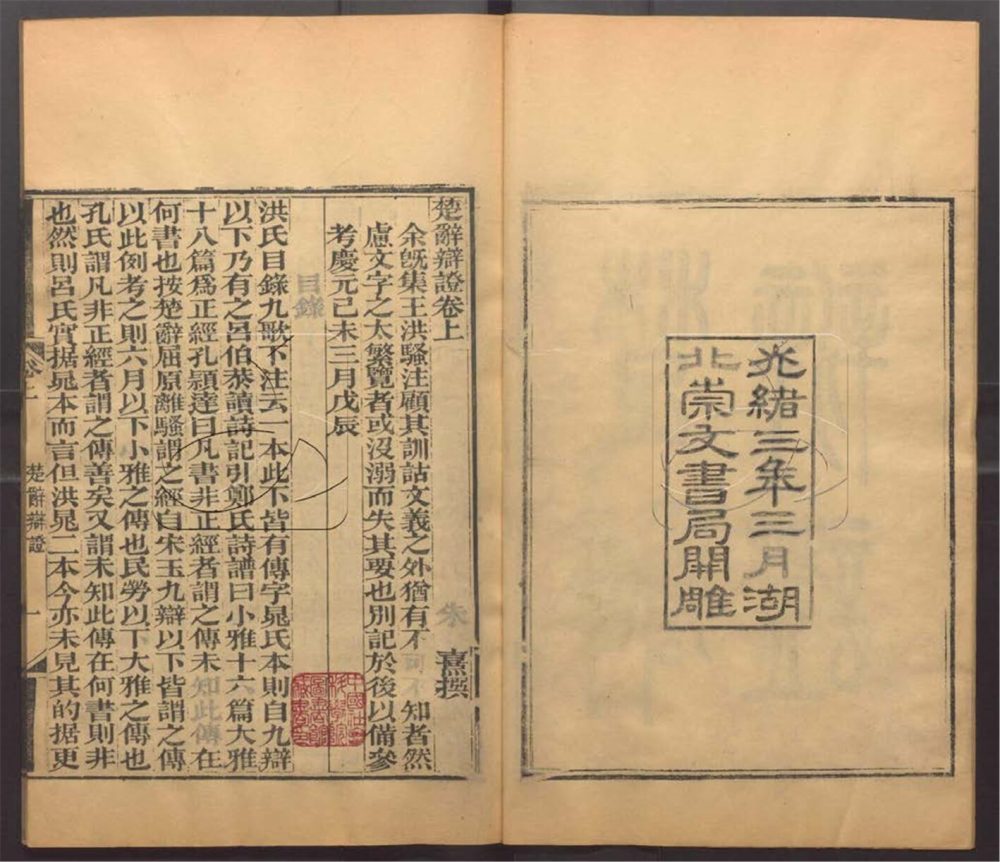 光緒三年三月湖
北崇文書局開雕
楚辭辯證卷上
朱熹撰
余旣集王洪騷注顧其訓詁文義之外猶有不可不知者然
慮文字之太繁覽者或沒溺而失其要也別記於後以備參
考慶元己未三月戊辰
目錄
洪氏目錄九歌下注云一本此下皆有傳字晁氏本則自九辯
以下乃有之呂伯恭讀詩記引鄭氏詩譜曰小雅十六篇大雅
十八篇爲正經孔頴達曰凡書非正經者謂之傳未知此傳在
何書也按楚辭屈原離騷謂之經自宋玉九辯以下皆謂之傳
以此例考之則六月以下小雅之傳也民勞以下大雅之傳也
孔氏謂凡非正經者謂之傳善矣又謂未知此傳在何書則非
也然則呂氏實据晁本而言但洪晁二本今亦未見其的据更
卷上
楚辭辯證
一